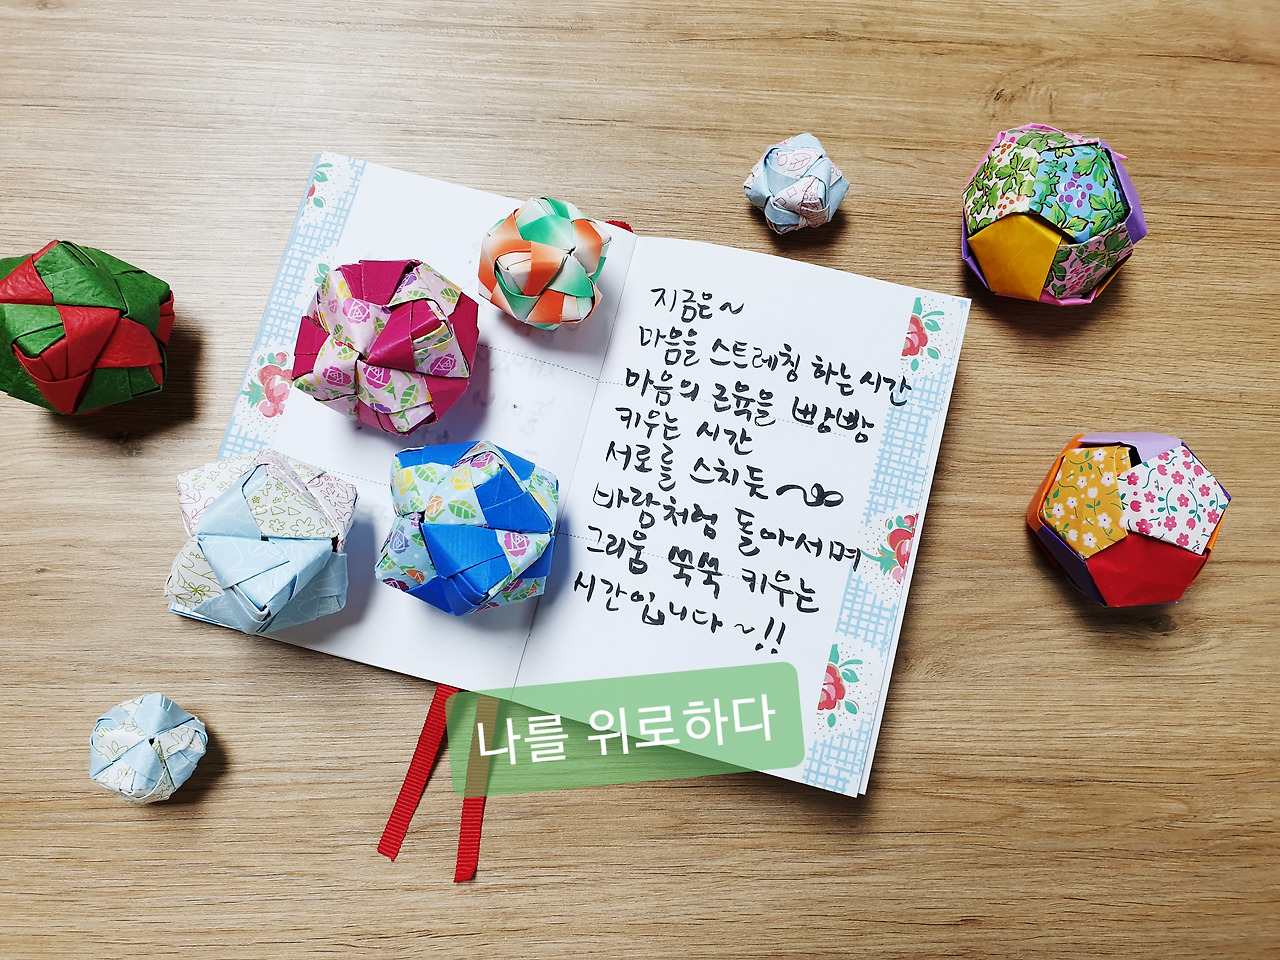 지금은~
마음을 스트레칭 하는 시간
마음의 근육을 빵빵
키우는 시간
서로를 스치듯 ~
바람처럼 돌아서며
그리움 쑥쑥 키우는
시간입니다 ~!!
나를 위로하다